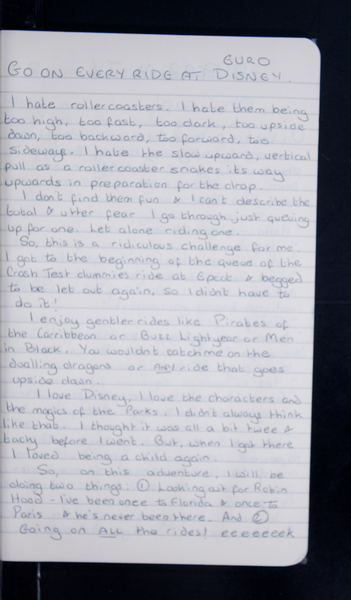 EURO
GO ON EVERY RIDE AT DISNEY.
I hate rollercoasters. I hate them being
too high, too fast, too dark, too upside
down, too backward, too forward, too
sideways. I hate the slow upward, vertical
pull as a rollercoaster snakes its way
upwards in preparation for the drop.
I don't find them fun & I can't describe the
total & utter fear I go through just queuing
up for one. Let alone riding one.
So, this is a ridiculous challenge for me.
I got to the beginning of the queue of the
Crash Test dummies ride at Epcot & begged
to be let out again, so I didn't have to
do it!
I enjoy gentler rides like Pirates of
the Carribbean or Buzz Lightyear or Men
in Black. You wouldn't catch me on the
dualling dragons or ANY ride that goes
upside down.
I love Disney. I love the characters and
the magics of the Parks. I didn't always think
like that. I thought it was all a bit twee &
tacky before I went. But, when I got there
I loved being a child again.
So, on this adventure, I will be
doing two things: ① Looking out for Robin
Hood - I've been once to Florida & once to
Paris & he's never been there. And ②
Going on ALL the rides! eeeeeeek